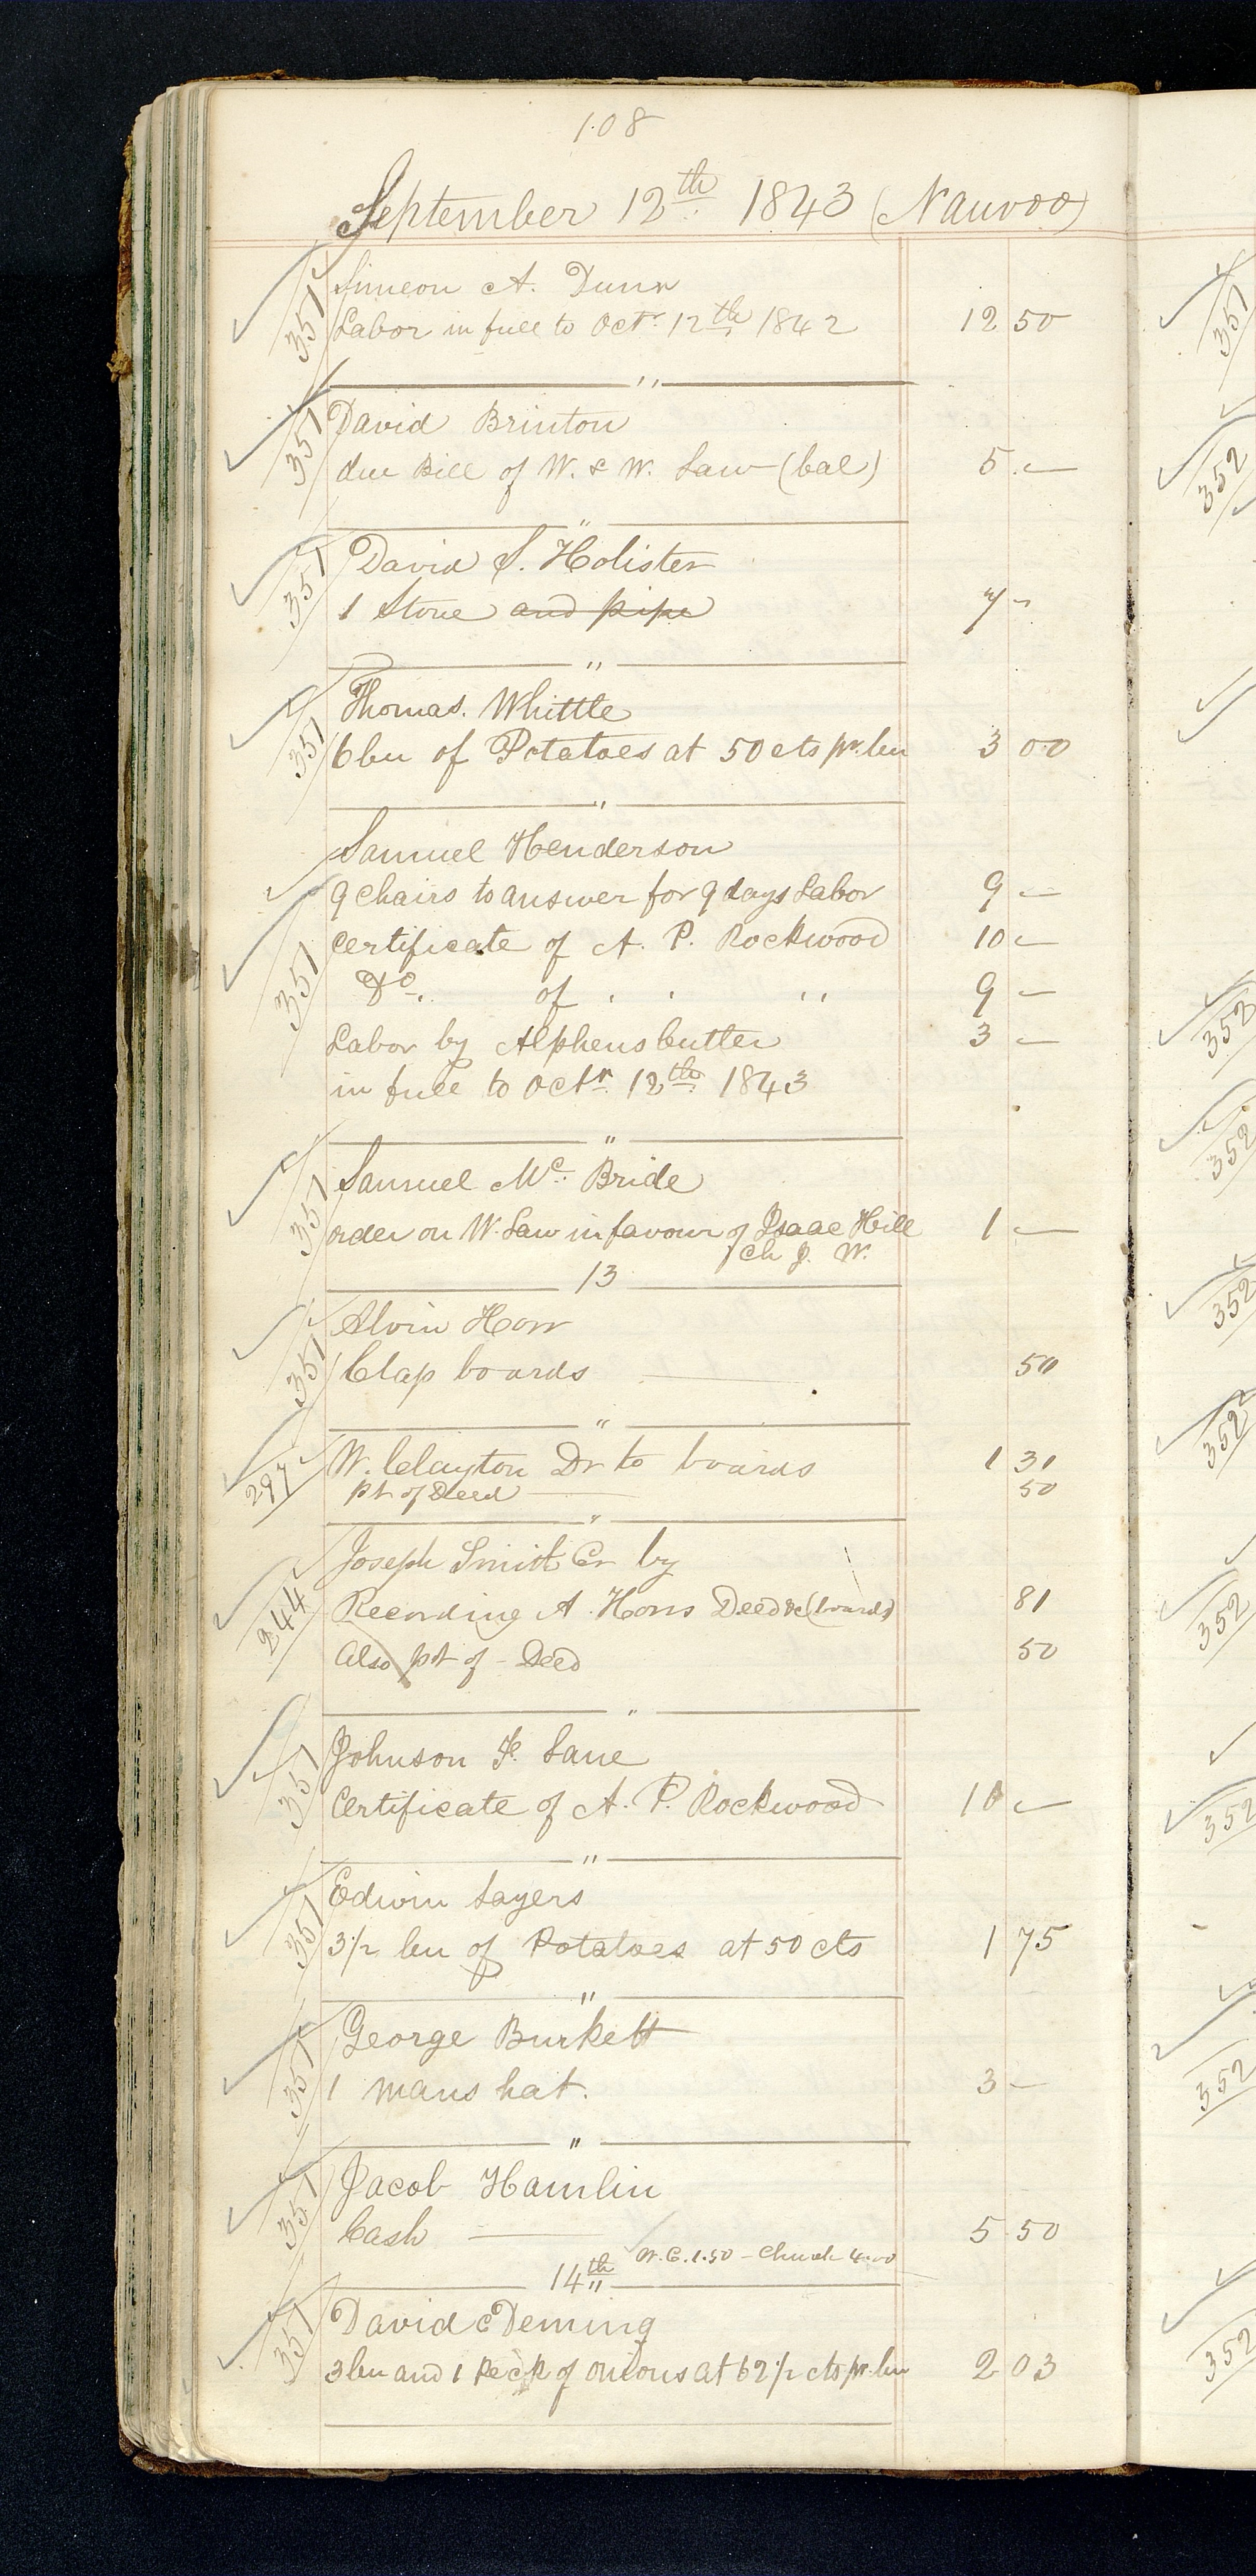 108
September 12th 1843 (Nauvoo)
351 Simeon A. Dunn
Labor in full to Octr. 12th 1842 12 50
"
351 David Brinton
due Bill of W. & W. Law (bal) 5 —
"
351 David S. Holister
1 Stove and pipe 7 -
"
351 Thomas. Whittle
6 bu of Potatoes at 50 cts pr. bu 3 00
"
Samuel Henderson
9 chairs to answer for 9 days Labor 9 —
351 Certificate of A. P. Rockwood 10 —
Do. of " " " 9 —
Labor by Alpheus Cutler 3 —
in full to Octr. 12th 1843
"
351 Samuel Mc. Bride
order on W. Law in favour of Isaac Hill 1 —
Ch J. W.
13
351 Alvin Horr
Clap boards — 50
"
297 W. Clayton Dr to boards 1 31
pt of Deed — 50
"
244 Joseph Smith Cr by
Recording A. Horrs Deed &c (boards) 81
Also pt of - Deed 50
"
351 Johnson F. Lane
Certificate of A. P. Rockwood 10 —
"
351 Edwin Sayers
3 1/2 bu of Potatoes at 50 cts 1 75
"
351 George Burkett
1 mans hat. 3 —
"
351 Jacob Hamlin
Cash — 5 50
W. C. 1.50 — Church 4.00
14th "
351 David C Deming
3 bu and 1 Peck of onions at 62 1/2 cts pr. bu 2 03
351
352
352
352
352
352
352
352
352
352